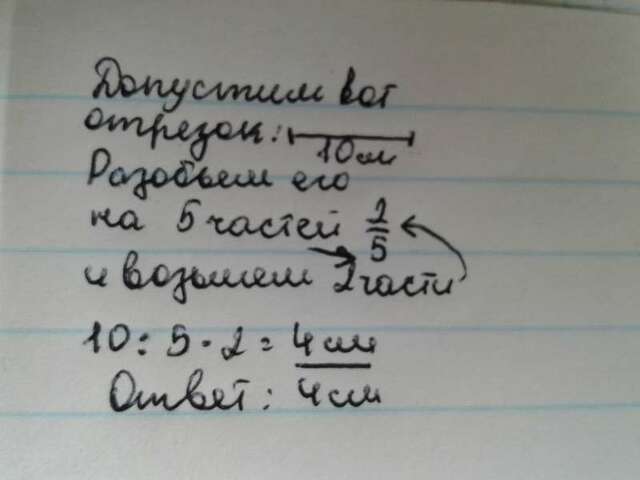 Допустим вот
отрезок: 10см
Разобьем его
на 5 частей 2/5
и возьмем 2 части
10 : 5 · 2 = 4 см
Ответ : 4 см